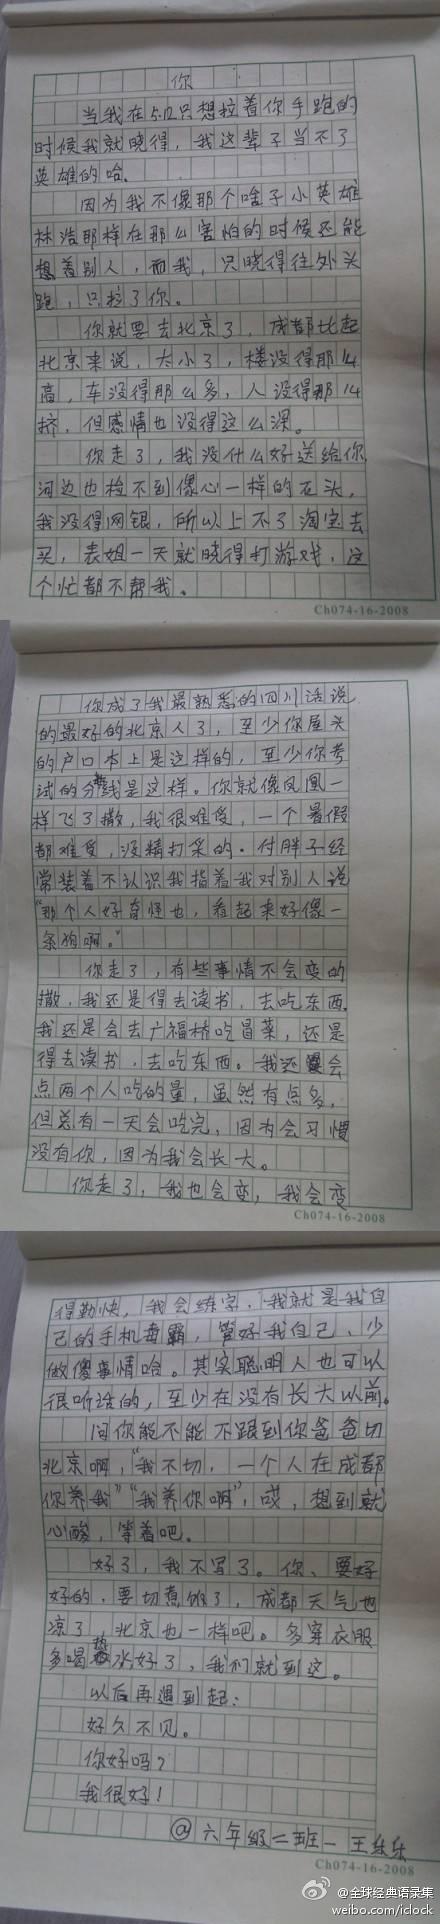 你
当我在5.12只想拉着你手跑的
时候我就晓得，我这辈子当不了
英雄的哈.
因为我不像那个啥子小英雄
林浩那样在那么害怕的时候还能
想着别人，而我，只晓得往外头
跑，只拉了你。
你就要去北京了，成都比起
北京来说，太小了，楼没得那么
高，车没得那么多，人没得那么
挤，但感情也没得这么深。
你走了，我没什么好送给你
河边也检不到像心一样的石头，
我没得网银，所以上不了淘宝去
买，表姐一天就晓得打游戏，这
个忙都不帮我。
Ch074-16-2008
你成了我最熟悉的四川话说
的最好的北京人了，至少你屋头
的户口本上是这样的，至少你考
试的分数线是这样。你就像凤凰一
样飞了撒，我很难受，一个暑假
都难受，没精打采的.付胖子经
常装着不认识我指着我对别人说
“那个人好奇怪也，看起来好像一
条狗啊。”
你走了，有些事情不会变的
撒，我还是得去读书，去吃东西.
我还是会去广福桥吃冒菜，还是
得去读书，去吃东西。我还会
点两个人吃的量，虽然有点多，
但总有一天会吃完，因为会习惯
没有你，因为我会长大。
你走了，我也会变，我会变
Ch074-16-2008
得勤快，我会练字，我就是我自
己的手机毒霸，管好我自己、少
做傻事情哈。其实聪明人也可以
很听话的，至少在没有长大以前。
问你能不能不跟到你爸爸切
北京啊，“我不切，一个人在成都
你养我”“我养你啊”，哎，想到就
心酸，等着吧。
好了，我不写了。你、要好
好的，要切煮饭了，成都天气也
凉了，北京也一样吧。多穿衣服
多喝热水好了，我们就到这。
以后再遇到起：
好久不见。
你好吗？
我很好！
@六年级二班一王乐乐
Ch074-16-2008
@全球经典语录集
weibo.com/iclock